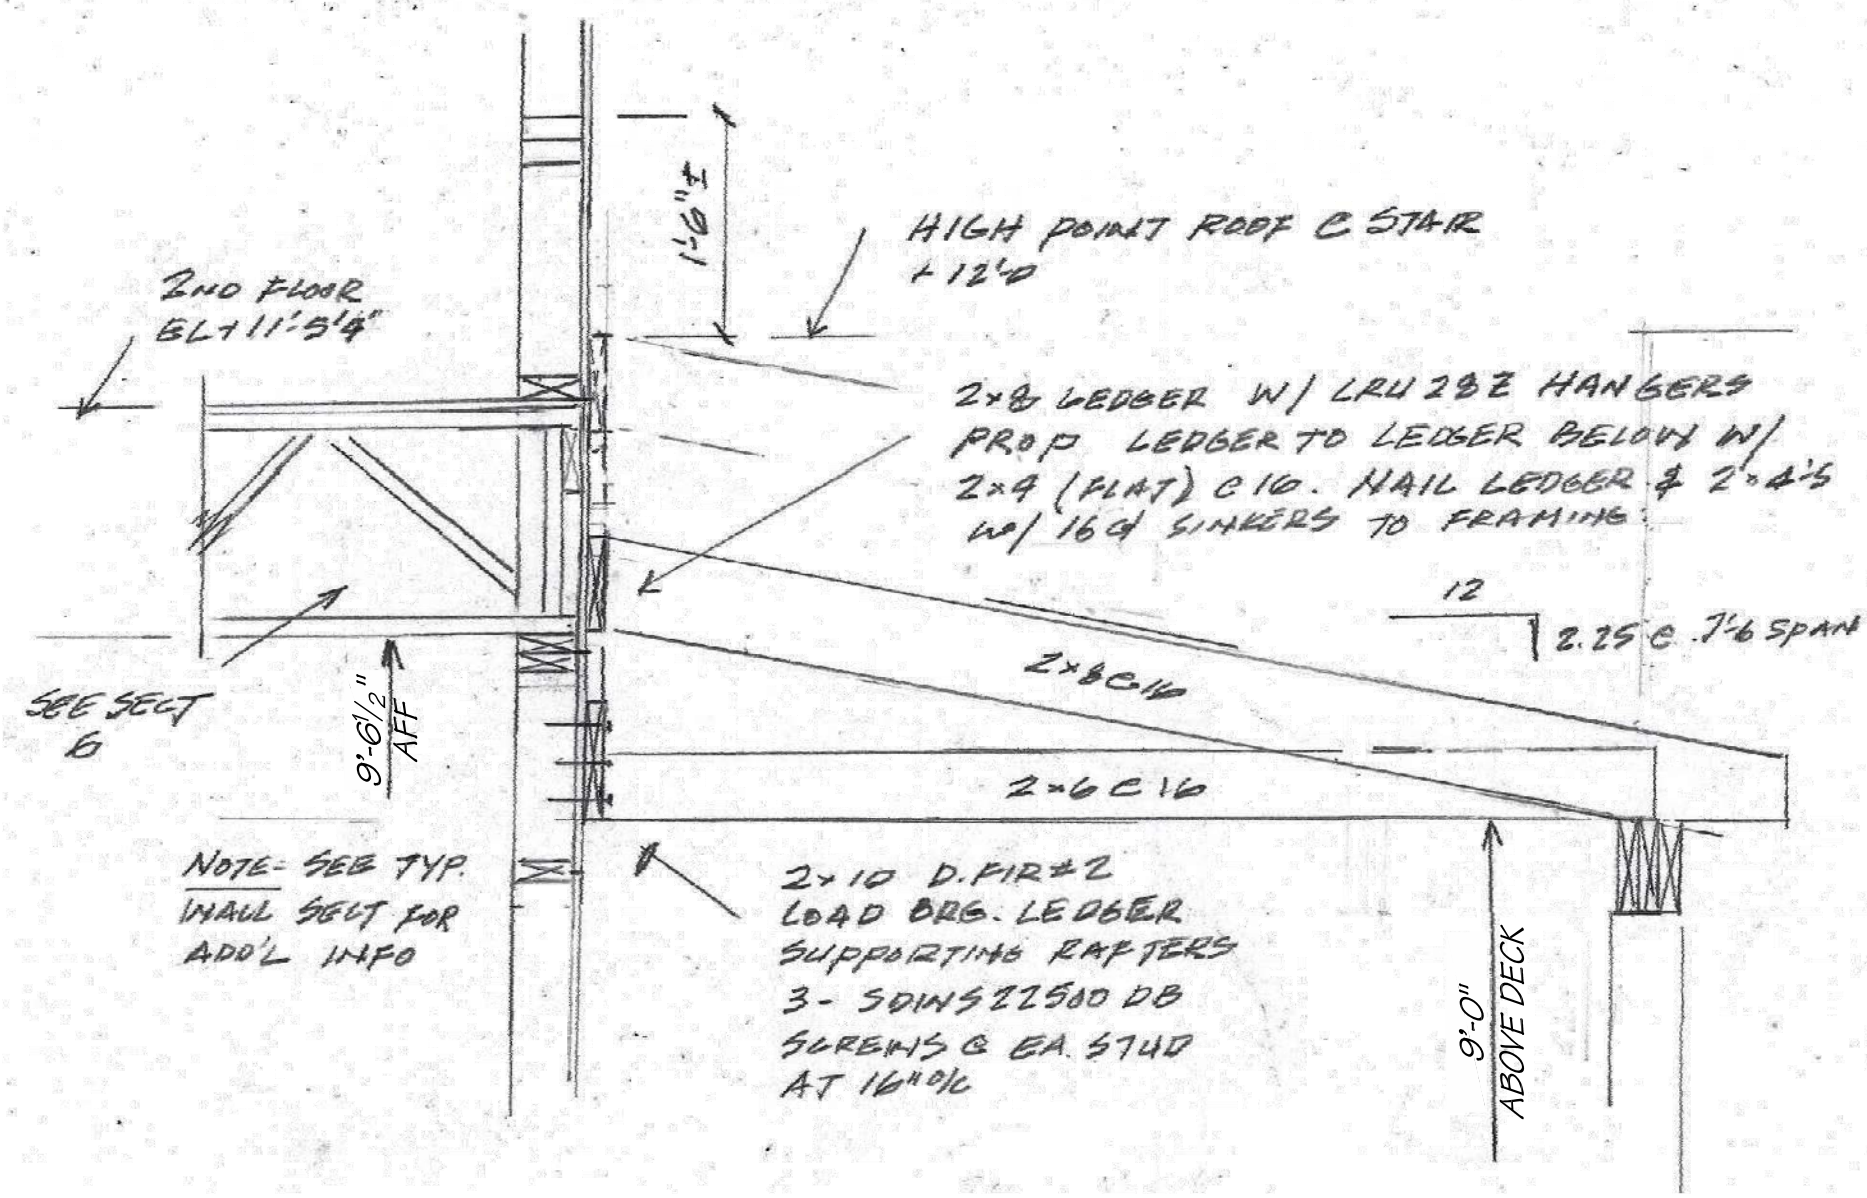 1'-9" ±
HIGH POINT ROOF @ STAIR
+ 12'-0
2ND FLOOR
EL +11'-5'4"
2x8 LEDGER W/ LRU28Z HANGERS
PROP LEDGER TO LEDGER BELOW W/
2x4 (FLAT) @ 16. NAIL LEDGER & 2x4'S
W/ 16d SINKERS TO FRAMING
12
2.25 @ 7'-6 SPAN
2x8 @ 16
SEE SECT
6
9'-6 1/2"
AFF
2x6 @ 16
NOTE- SEE TYP.
WALL SECT FOR
ADD'L INFO
2x10 D.FIR #2
LOAD BRG. LEDGER
SUPPORTING RAFTERS
3- SDWS22500 DB
SCREWS @ EA. STUD
AT 16" O/C
9'-0"
ABOVE DECK